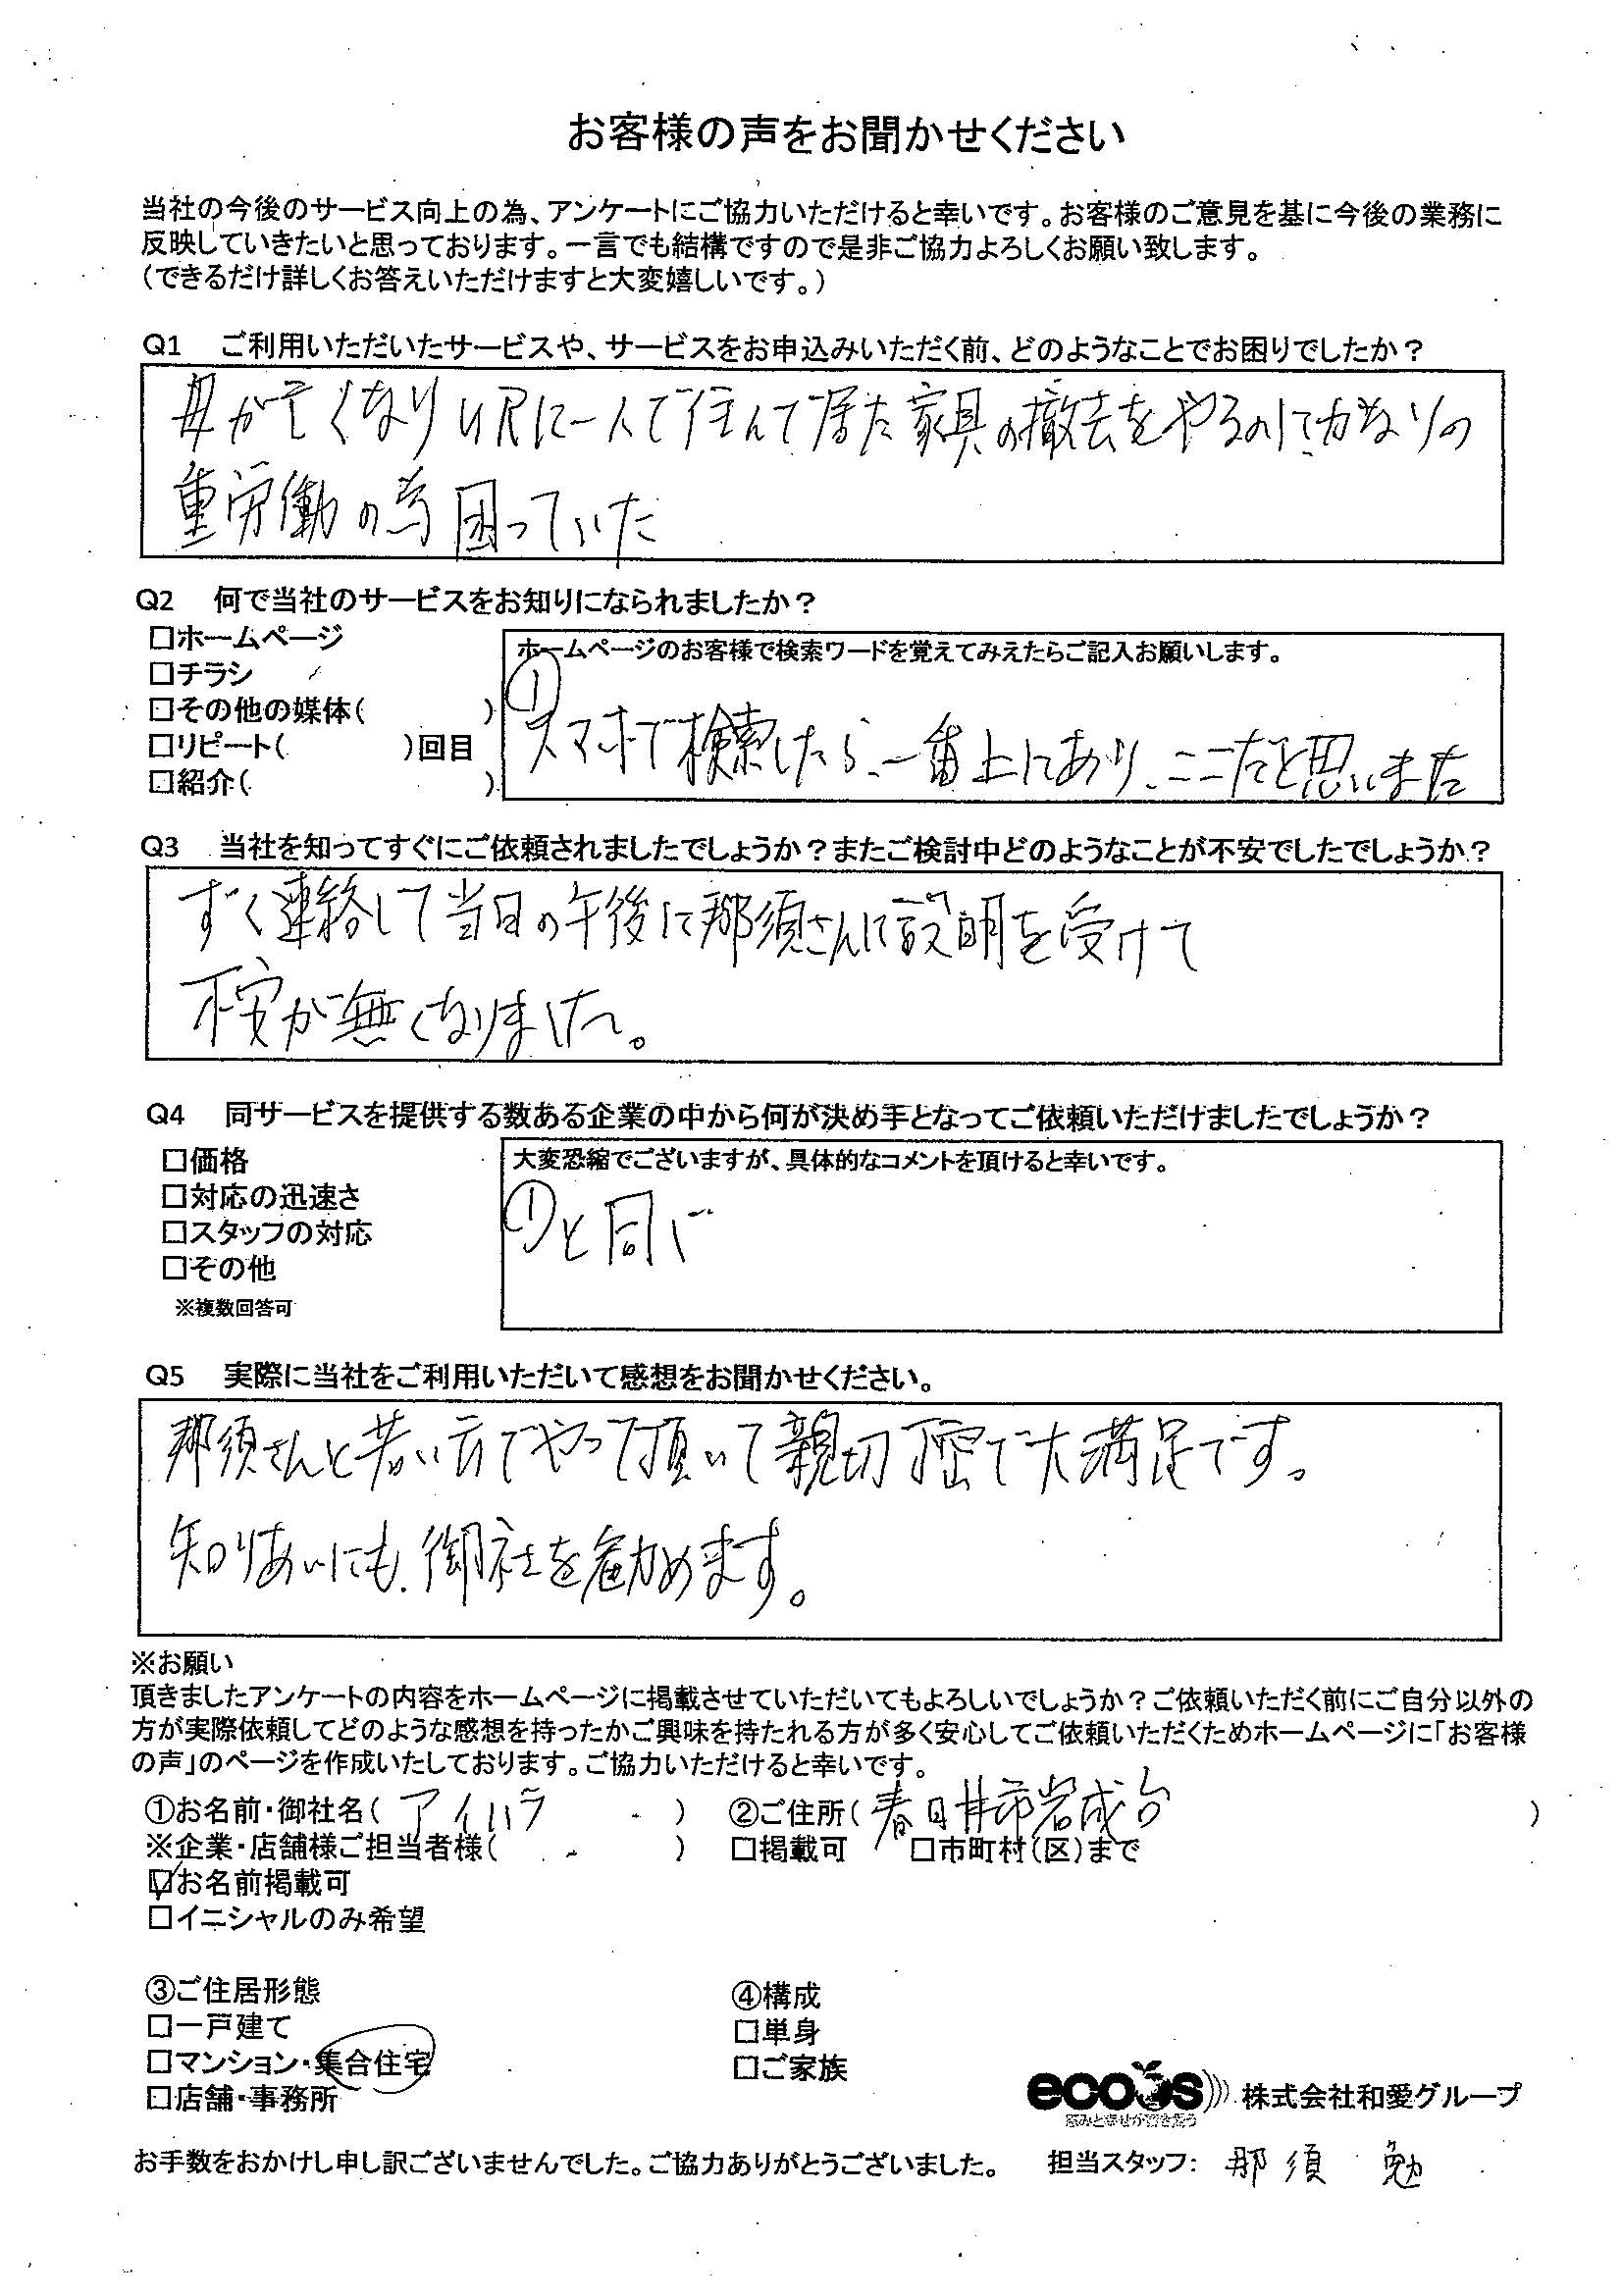 お客様の声をお聞かせください
当社の今後のサービス向上の為、アンケートにご協力いただけると幸いです。お客様のご意見を基に今後の業務に
反映していきたいと思っております。一言でも結構ですので是非ご協力よろしくお願い致します。
(できるだけ詳しくお答えいただけますと大変嬉しいです。)
Q1 ご利用いただいたサービスや、サービスをお申込みいただく前、どのようなことでお困りでしたか?
母が亡くなりURに一人で住んで居た家具の撤去をやるのにかなりの
重労働の為困っていた
Q2 何で当社のサービスをお知りになられましたか?
□ホームページ
□チラシ
□その他の媒体( )
□リピート( )回目
□紹介( )
ホームページのお客様で検索ワードを覚えてみえたらご記入お願いします。
①
スマホで検索したら、一番上にあり、ここだと思いました
Q3 当社を知ってすぐにご依頼されましたでしょうか?またご検討中どのようなことが不安でしたでしょうか?
すぐ連絡して当日の午後に那須さんに説明を受けて
不安が無くなりました。
Q4 同サービスを提供する数ある企業の中から何が決め手となってご依頼いただけましたでしょうか?
□価格
□対応の迅速さ
□スタッフの対応
□その他
※複数回答可
大変恐縮でございますが、具体的なコメントを頂けると幸いです。
①と同じ
Q5 実際に当社をご利用いただいて感想をお聞かせください。
那須さんと若い方でやって頂いて親切丁寧で大満足です。
知りあいにも、御社を勧めます。
※お願い
頂きましたアンケートの内容をホームページに掲載させていただいてもよろしいでしょうか?ご依頼いただく前にご自分以外の
方が実際依頼してどのような感想を持ったかご興味を持たれる方が多く安心してご依頼いただくためホームページに「お客様
の声」のページを作成いたしております。ご協力いただけると幸いです。
①お名前・御社名( アイハラ ) ②ご住所( 春日井市岩成台 )
※企業・店舗様ご担当者様( ) □掲載可 □市町村(区)まで
☑お名前掲載可
□イニシャルのみ希望
③ご住居形態
□一戸建て
□マンション・集合住宅
□店舗・事務所
④構成
□単身
□ご家族
ecoos 株式会社和愛グループ
お手数をおかけし申し訳ございませんでした。ご協力ありがとうございました。 担当スタッフ: 那須 勉